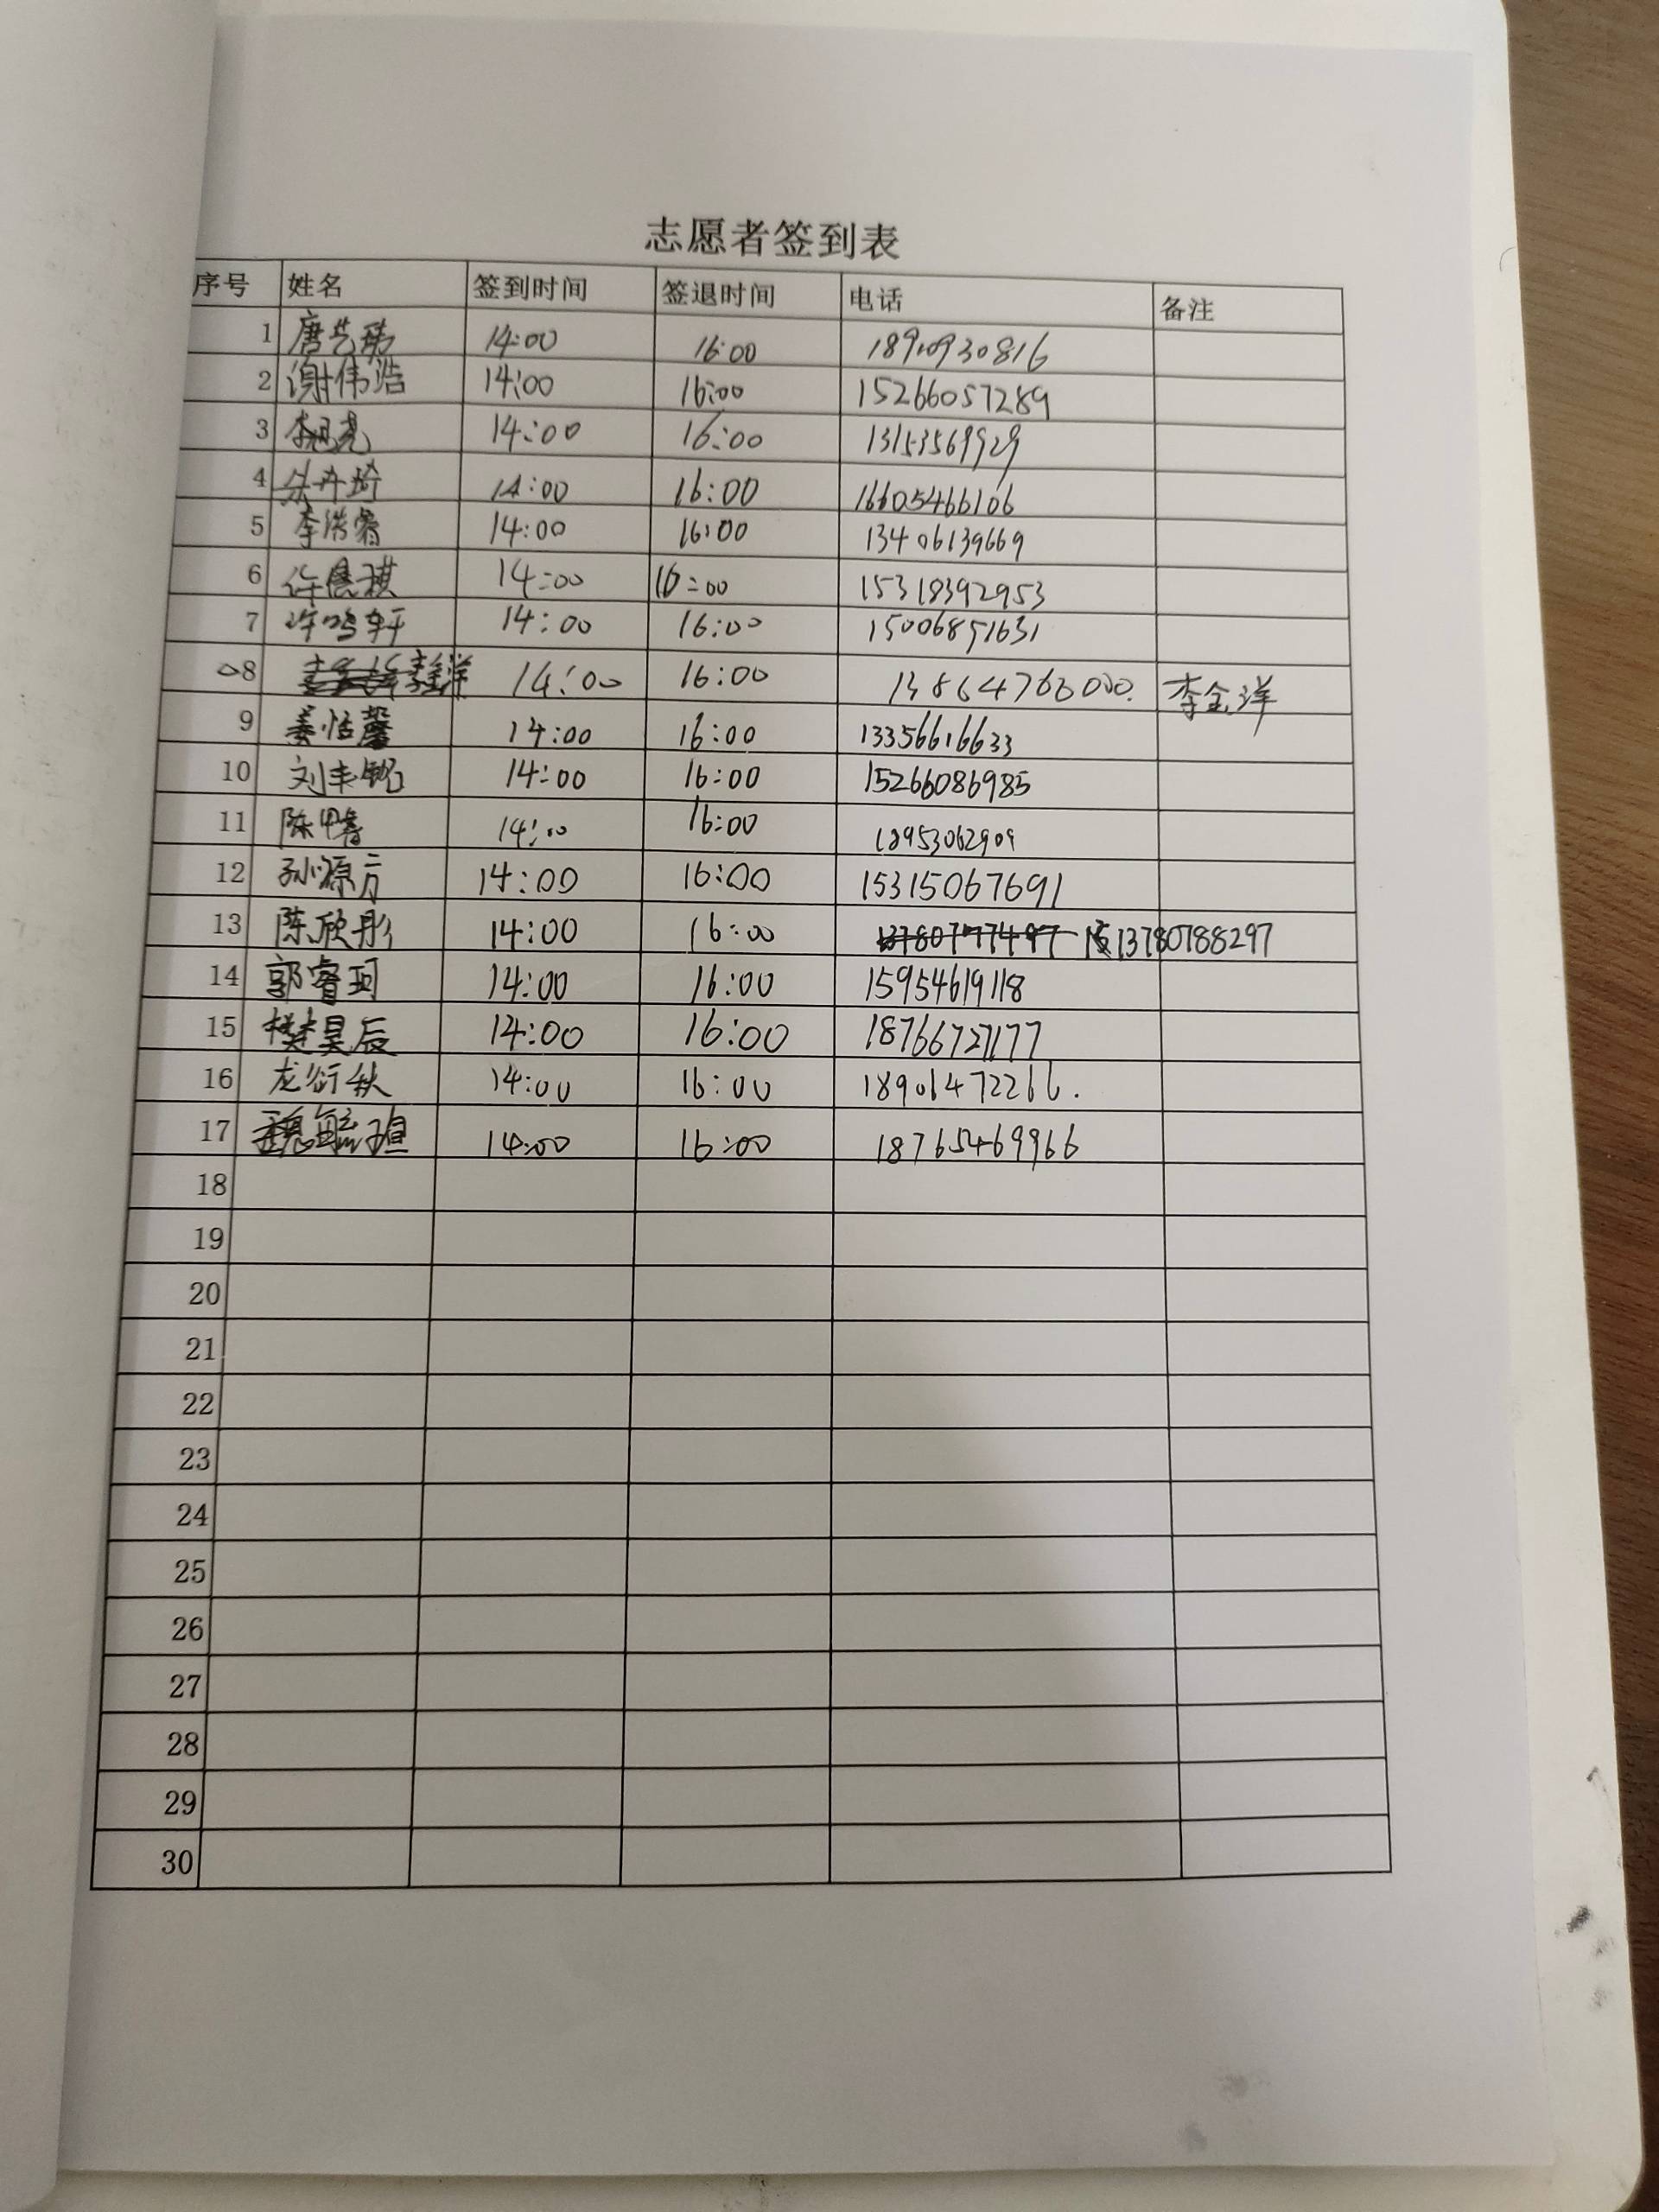 志愿者签到表
序号 姓名 签到时间 签退时间 电话 备注
1 唐艺 14:00 16:00 18910930816
2 谢伟浩 14:00 16:00 15266057289
3 李 14:00 16:00 13153569929
4 朱卉琦 14:00 16:00 16605466106
5 李浩睿 14:00 16:00 13406139669
6 许 琪 14:00 16:00 15318392953
7 许鸣轩 14:00 16:00 15006851631
8 李金洋 14:00 16:00 13864766000. 李金洋
9 姜恬馨 14:00 16:00 13356616633
10 刘丰铭 14:00 16:00 15266086985
11 陈 14:00 16:00 18953062909
12 孙源 14:00 16:00 15315067691
13 陈欣彤 14:00 16:00 13780788297
14 郭睿珂 14:00 16:00 15954619118
15 樊昊辰 14:00 16:00 18766727177
16 龙衍秋 14:00 16:00 18906472266.
17 魏毓瑄 14:00 16:00 18765469966
18
19
20
21
22
23
24
25
26
27
28
29
30